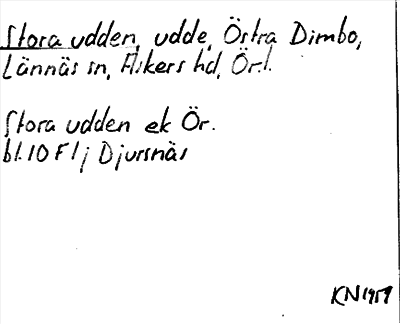 Stora udden, udde, Östra Dimbo,
Lännäs sn, Askers hd, Örl.
Stora udden ek Ör.
bl.10 F 1 j Djursnäs
KN 1959